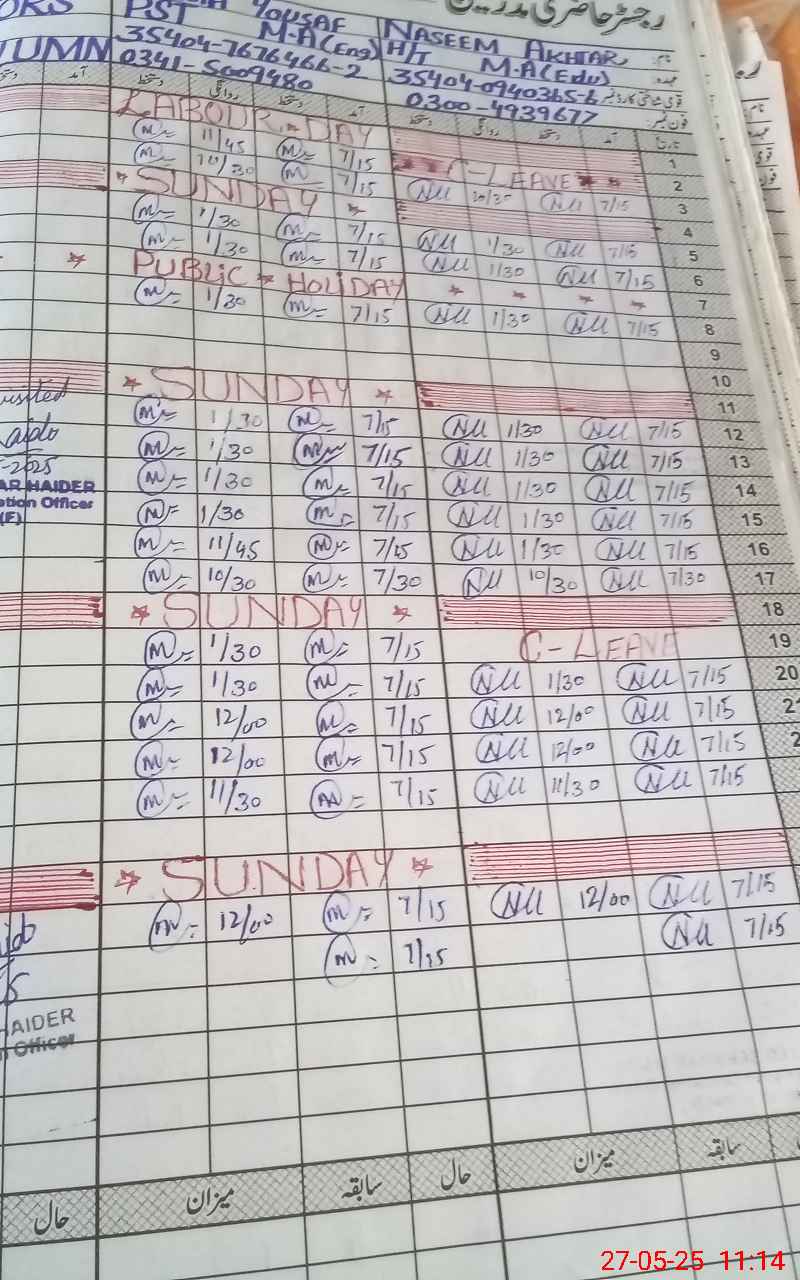 رجسٹر حاضری مدرسین
ORS PST YOUSAF NASEEM AKHTAR نام:
M.A(Eng) H/T M.A(Edu) عہدہ:
TUMM 35404-7676466-2 35404-0940365-6 قومی شناختی کارڈ نمبر
0341-5009480 0300-4939677 فون نمبر:
آمد دستخط روانگی دستخط آمد دستخط روانگی دستخط آمد تاریخ
LABOUR DAY 1
m 11/45 m 7/15 C-LEAVE 2
m 10/30 m 7/15 NU 10/30 NU 7/15 3
SUNDAY 4
m 1/30 m 7/15 NU 1/30 NU 7/15 5
m 1/30 m 7/15 NU 1/30 NU 7/15 6
PUBLIC HOLIDAY 7
m 1/30 m 7/15 NU 1/30 NU 7/15 8
9
10
SUNDAY 11
visited m 1/30 m 7/15 NU 1/30 NU 7/15 12
m 1/30 m 7/15 NU 1/30 NU 7/15 13
-2025 m 1/30 m 7/15 NU 1/30 NU 7/15 14
AR HAIDER
ation Officer
(F) m 1/30 m 7/15 NU 1/30 NU 7/15 15
m 11/45 m 7/15 NU 1/30 NU 7/15 16
m 10/30 m 7/30 NU 10/30 NU 7/30 17
SUNDAY 18
m 1/30 m 7/15 C-LEAVE 19
m 1/30 m 7/15 NU 1/30 NU 7/15 20
m 12/00 m 7/15 NU 12/00 NU 7/15 2
m 12/00 m 7/15 NU 12/00 NU 7/15 2
m 11/30 m 7/15 NU 11/30 NU 7/15
SUNDAY
m 12/00 m 7/15 NU 12/00 NU 7/15
m 7/15 NU 7/15
HAIDER
n Officer
حال میزان سابقہ حال میزان سابقہ
27-05-25 11:14